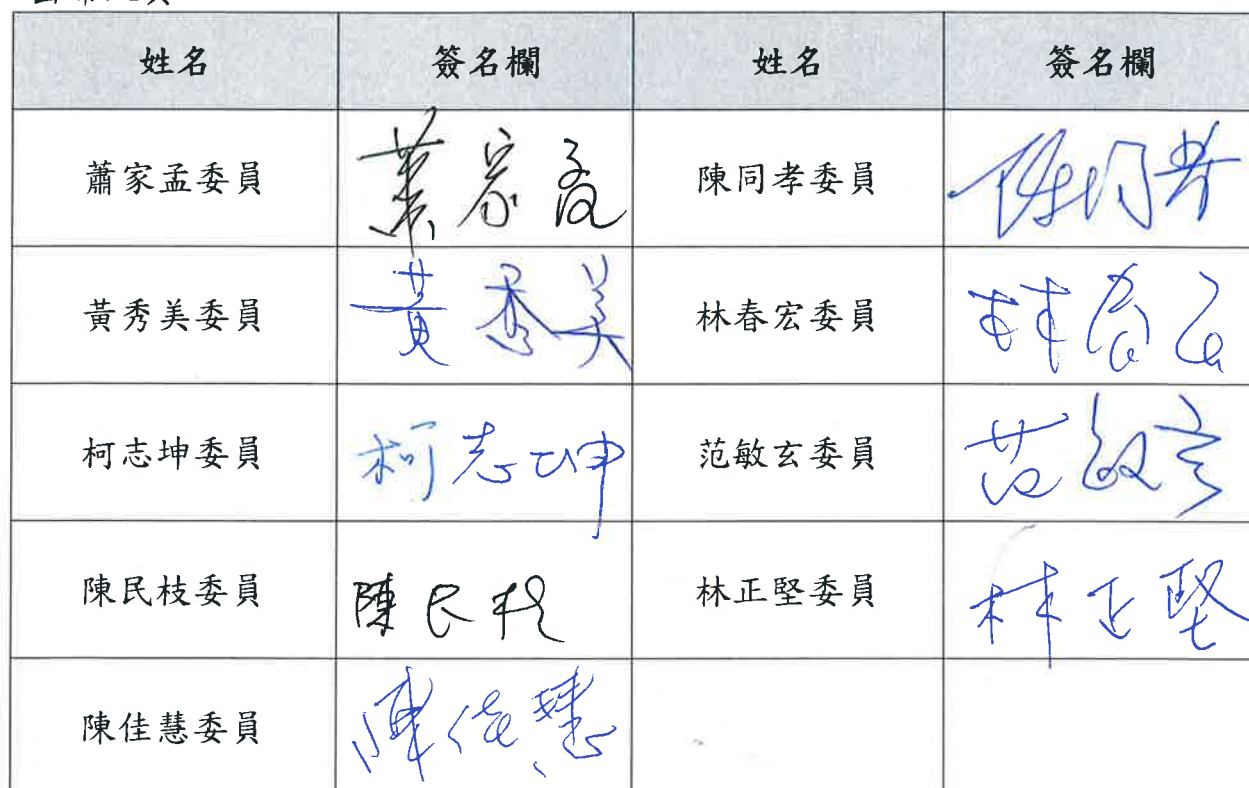 姓名 簽名欄 姓名 簽名欄
蕭家孟委員 蕭家孟 陳同孝委員 陳同孝
黃秀美委員 黃秀美 林春宏委員 林春宏
柯志坤委員 柯志坤 范敏玄委員 范敏玄
陳民枝委員 陳民枝 林正堅委員 林正堅
陳佳慧委員 陳佳慧